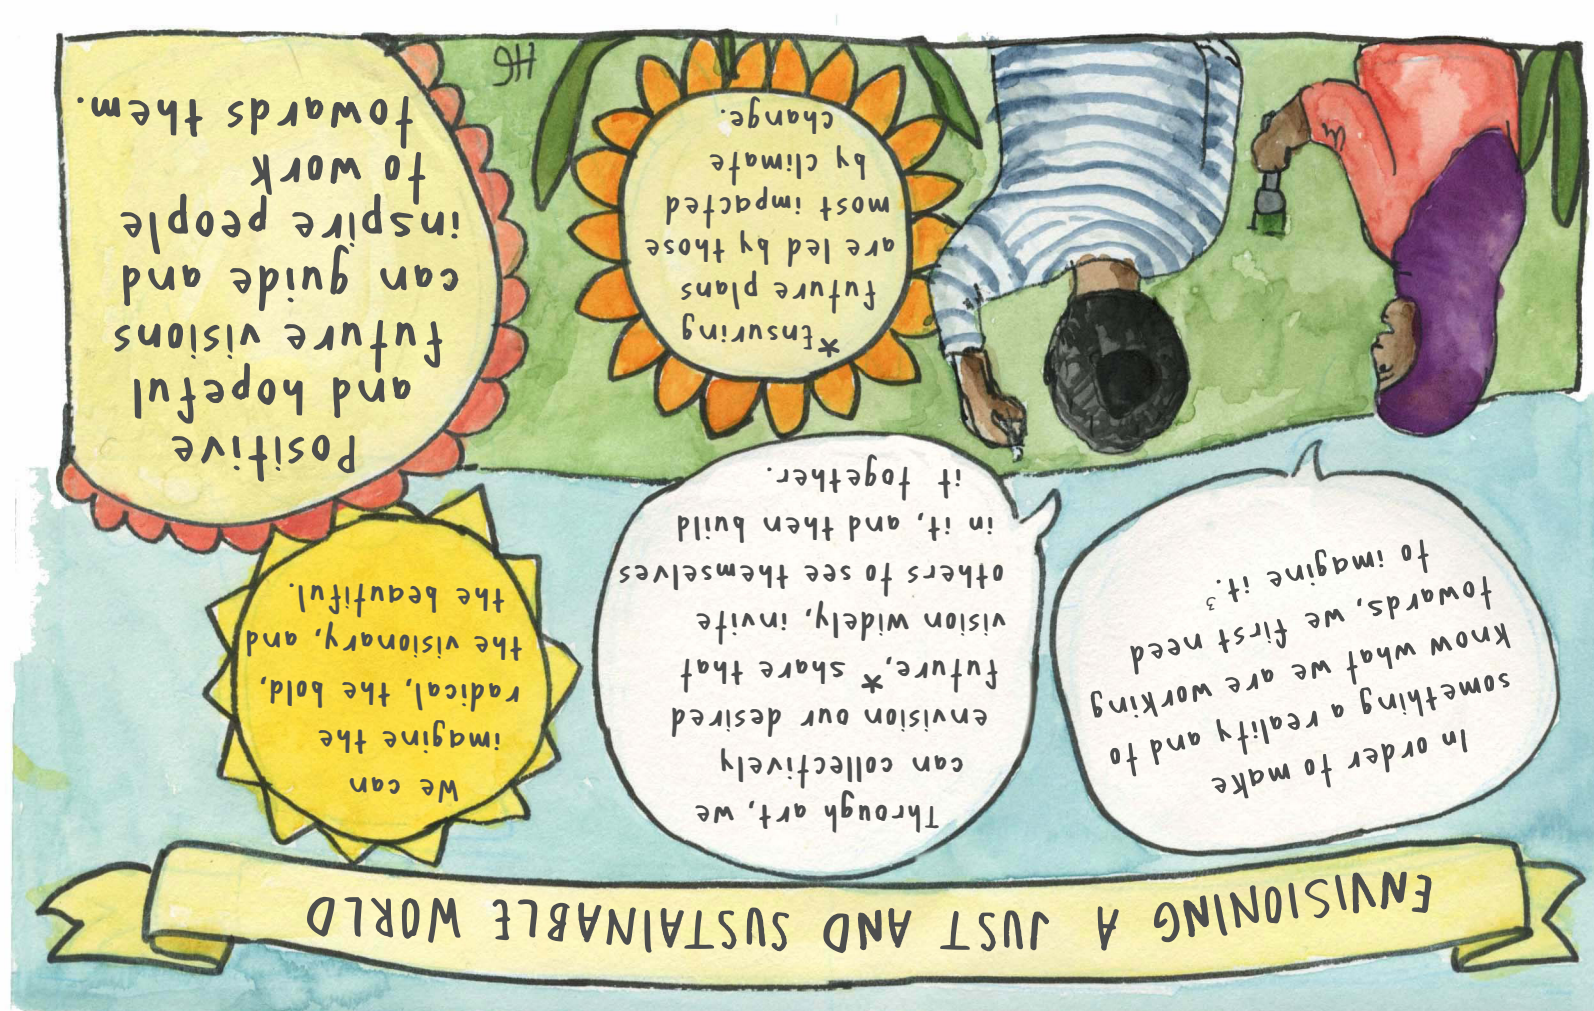 ENVISIONING A JUST AND SUSTAINABLE WORLD
In order to make
something a reality and to
know what we are working
towards, we first need
to imagine it.³
Through art, we
can collectively
envision our desired
future,* share that
vision widely, invite
others to see themselves
in it, and then build
it together.
We can
imagine the
radical, the bold,
the visionary, and
the beautiful.
*Ensuring
future plans
are led by those
most impacted
by climate
change.
Positive
and hopeful
future visions
can guide and
inspire people
to work
towards them.